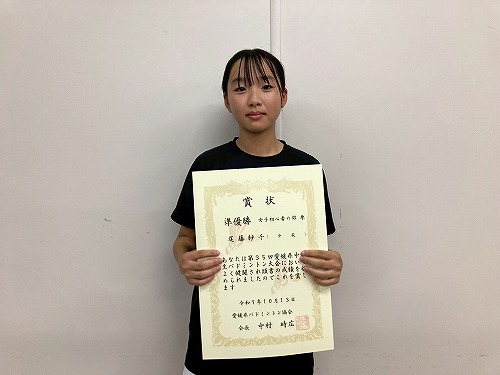 賞状
準優勝 女子初心者の部 単
尾藤紗千
あなたは第35回愛媛県中
生バドミントン大会におい
よく健闘され頭書の成績を
められましたのでこれを賞し
ます
令和7年10月13日
愛媛県バドミントン協会
会長 中村 時広